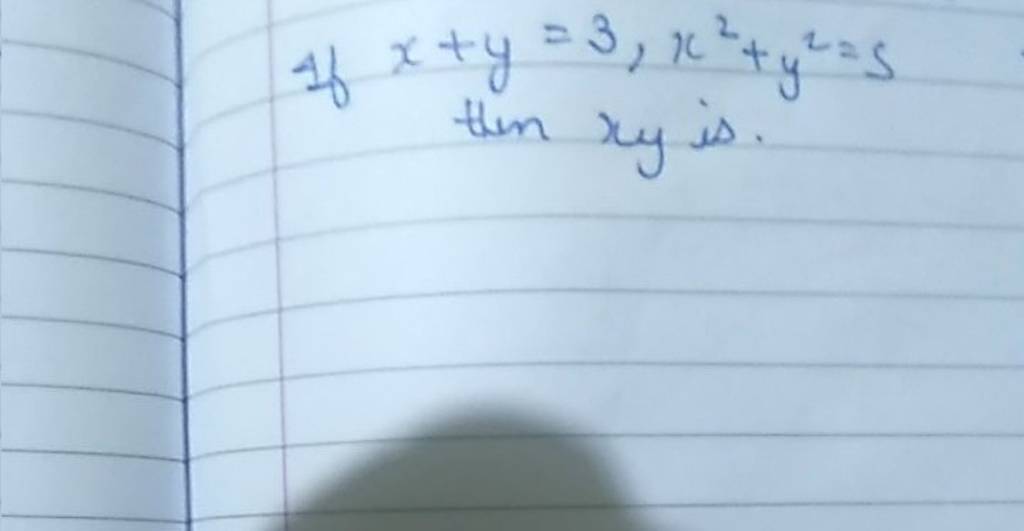 If x + y = 3, x² + y² = 5
then xy is.